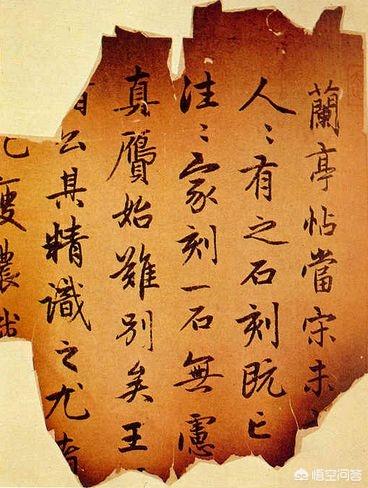 蘭亭帖當宋未
人〻有之石刻既亡
往〻家刻一石無慮
真贗始難別矣王
公其精識之尤
悟空问答